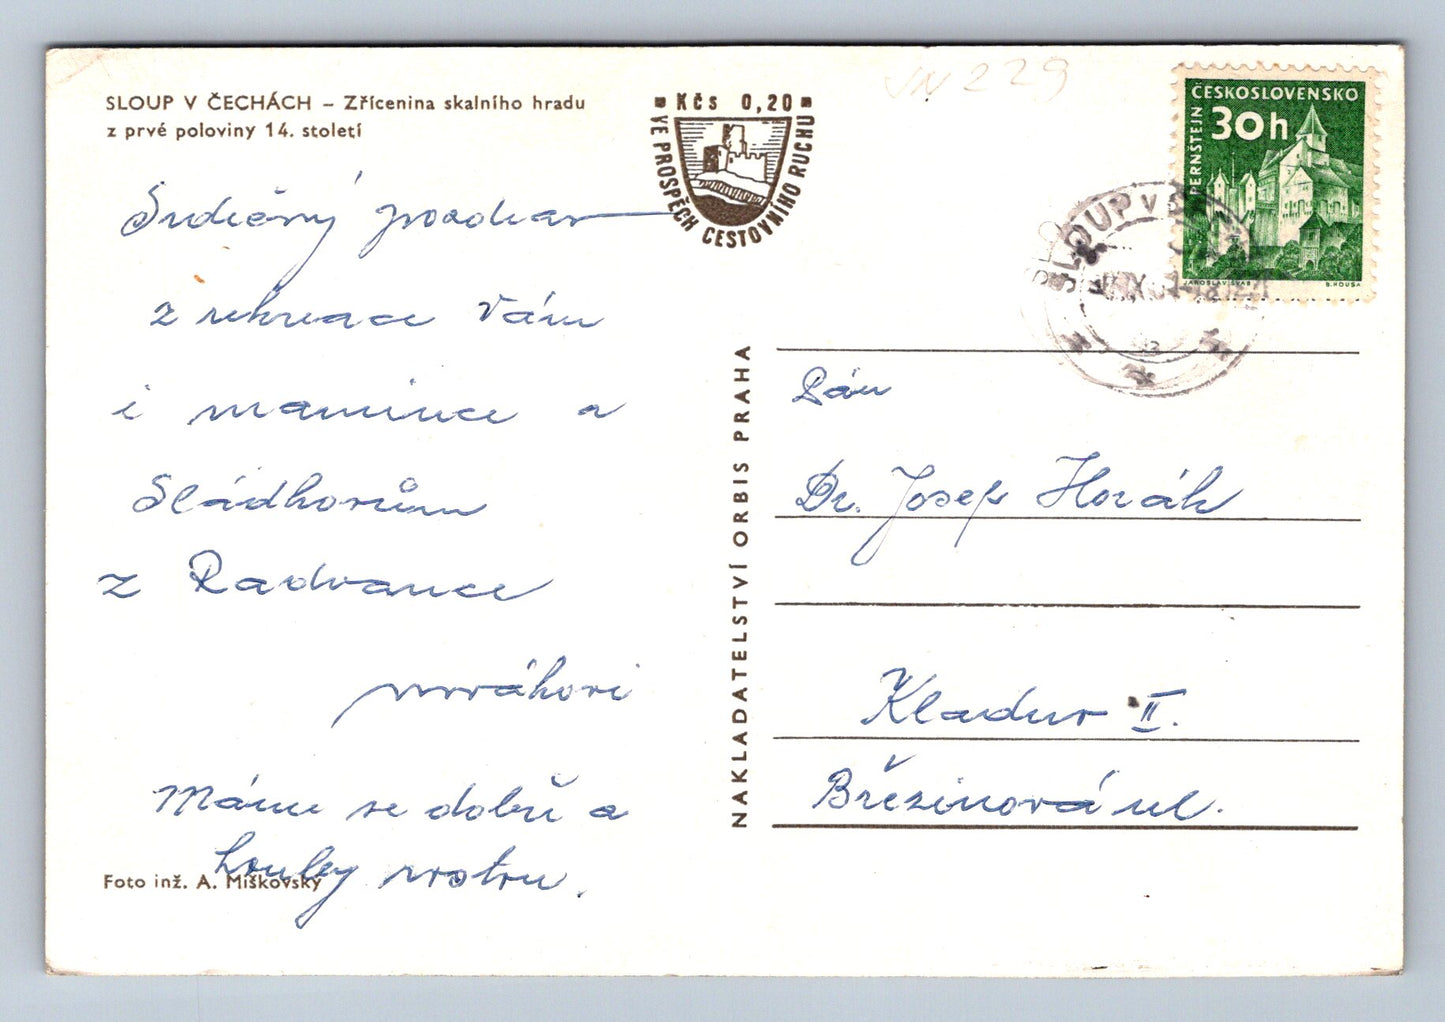 SLOUP V ČECHÁCH – Zřícenina skalního hradu
z prvé poloviny 14. století
Srdečný pozdrav
z rekreace Vám
i mamince a
Sládkorům
z Radvance
Máme se dobře a
houby rostou.
Foto inž. A. Miškovský
Kčs 0,20
VE PROSPĚCH CESTOVNÍHO RUCHU
NAKLADATELSTVÍ ORBIS PRAHA
229
ČESKOSLOVENSKO
30h
PERNŠTEJN
JAROSLAV ŠVÁB
B. HOUSA
SLOUP V
Pán
Dr. Josef Horák
Kladno II.
Březinová ul.